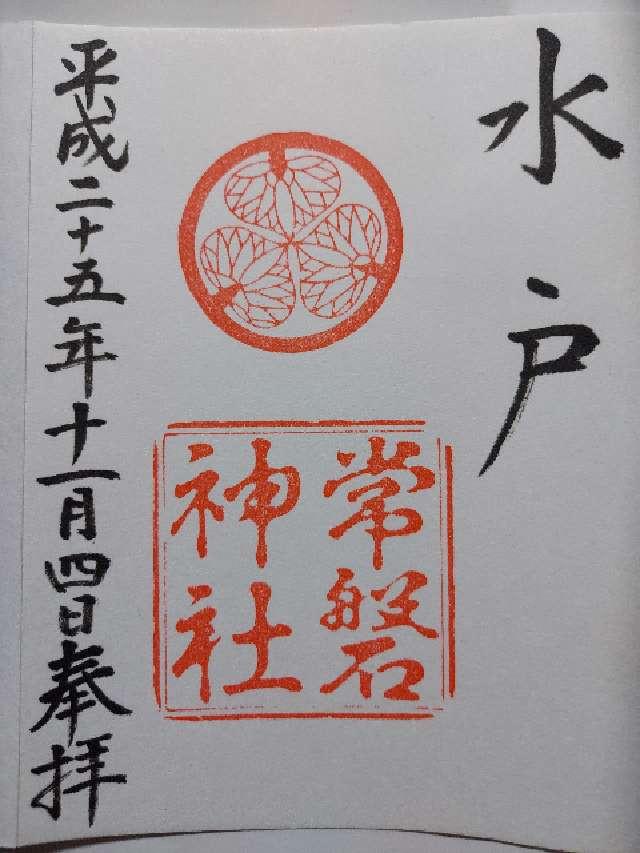 水戸
常磐
神社
平成二十五年十一月四日奉拝